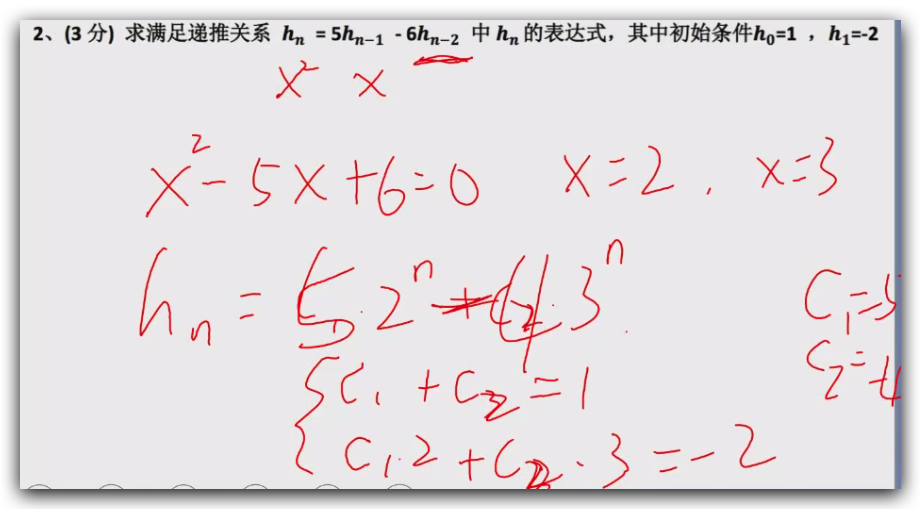 2、(3 分) 求满足递推关系 hₙ = 5hₙ₋₁ - 6hₙ₋₂ 中 hₙ 的表达式，其中初始条件h₀=1 ，h₁=-2
x² x
x² - 5x + 6 = 0 x = 2 , x = 3
hₙ = 5·2ⁿ - 4·3ⁿ
C₁ = 5
C₁ + C₂ = 1
C₂ =
C₁·2 + C₂·3 = -2